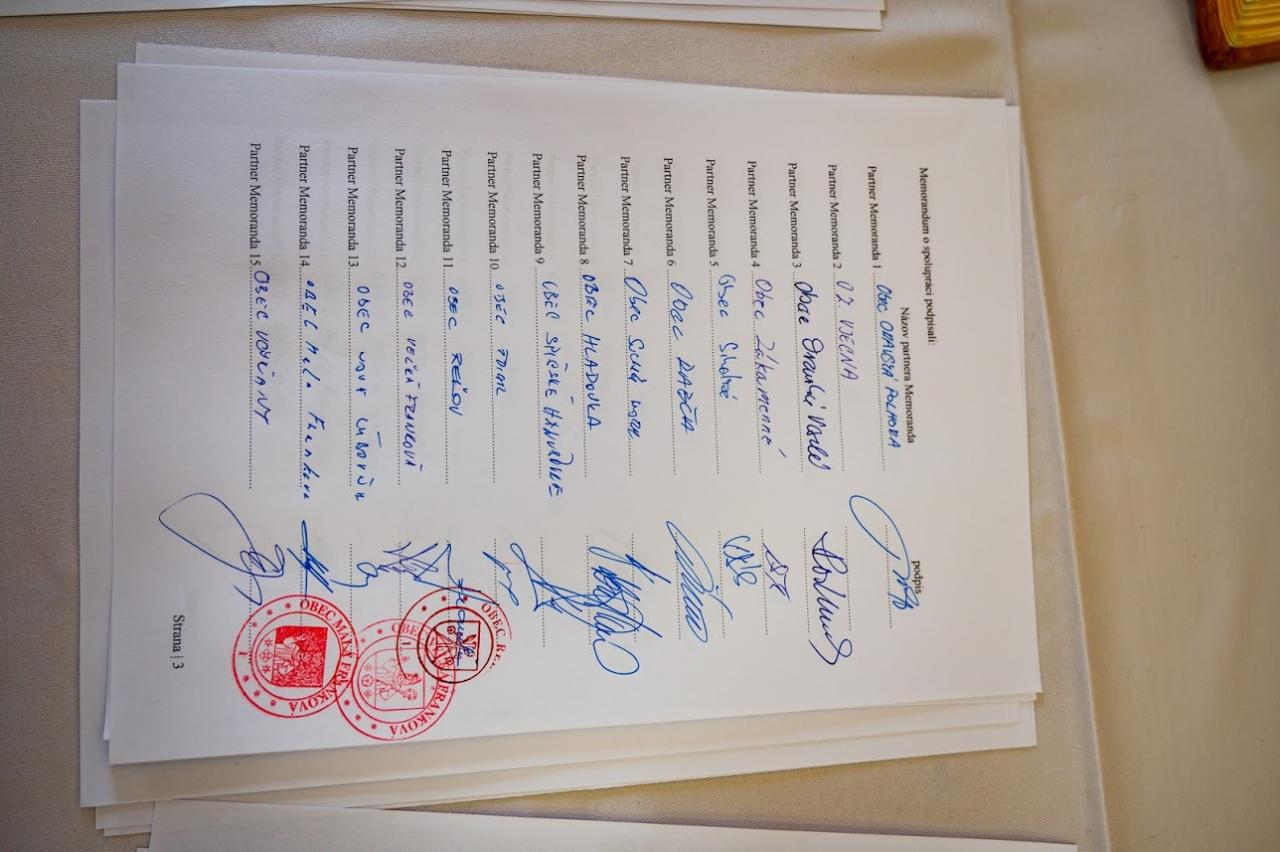 Memorandum o spolupráci podpísali:
Názov partnera Memoranda podpis
Partner Memoranda 1 OBEC ORAVSKÁ POLHORA
Partner Memoranda 2 OZ VJECNA
Partner Memoranda 3 Obec Oravské Veselé
Partner Memoranda 4 Obec Zákamenné
Partner Memoranda 5 Obec Sihelné
Partner Memoranda 6 Obec RABČA
Partner Memoranda 7 Obec SUCHÁ HORA
Partner Memoranda 8 OBEC HLADOVKA
Partner Memoranda 9 OBEC SPIŠSKÉ HANUŠOVCE
Partner Memoranda 10 OBEC
Partner Memoranda 11 OBEC REĽOV
Partner Memoranda 12 OBEC VEĽKÁ FRANKOVÁ
Partner Memoranda 13 OBEC NOVÁ ĽUBOVŇA
Partner Memoranda 14 OBEC Malá Franková
Partner Memoranda 15 OBEC
OBEC REĽ
OBEC FRANKOVÁ
OBEC MALÁ FRANKOVÁ
1
Strana | 3